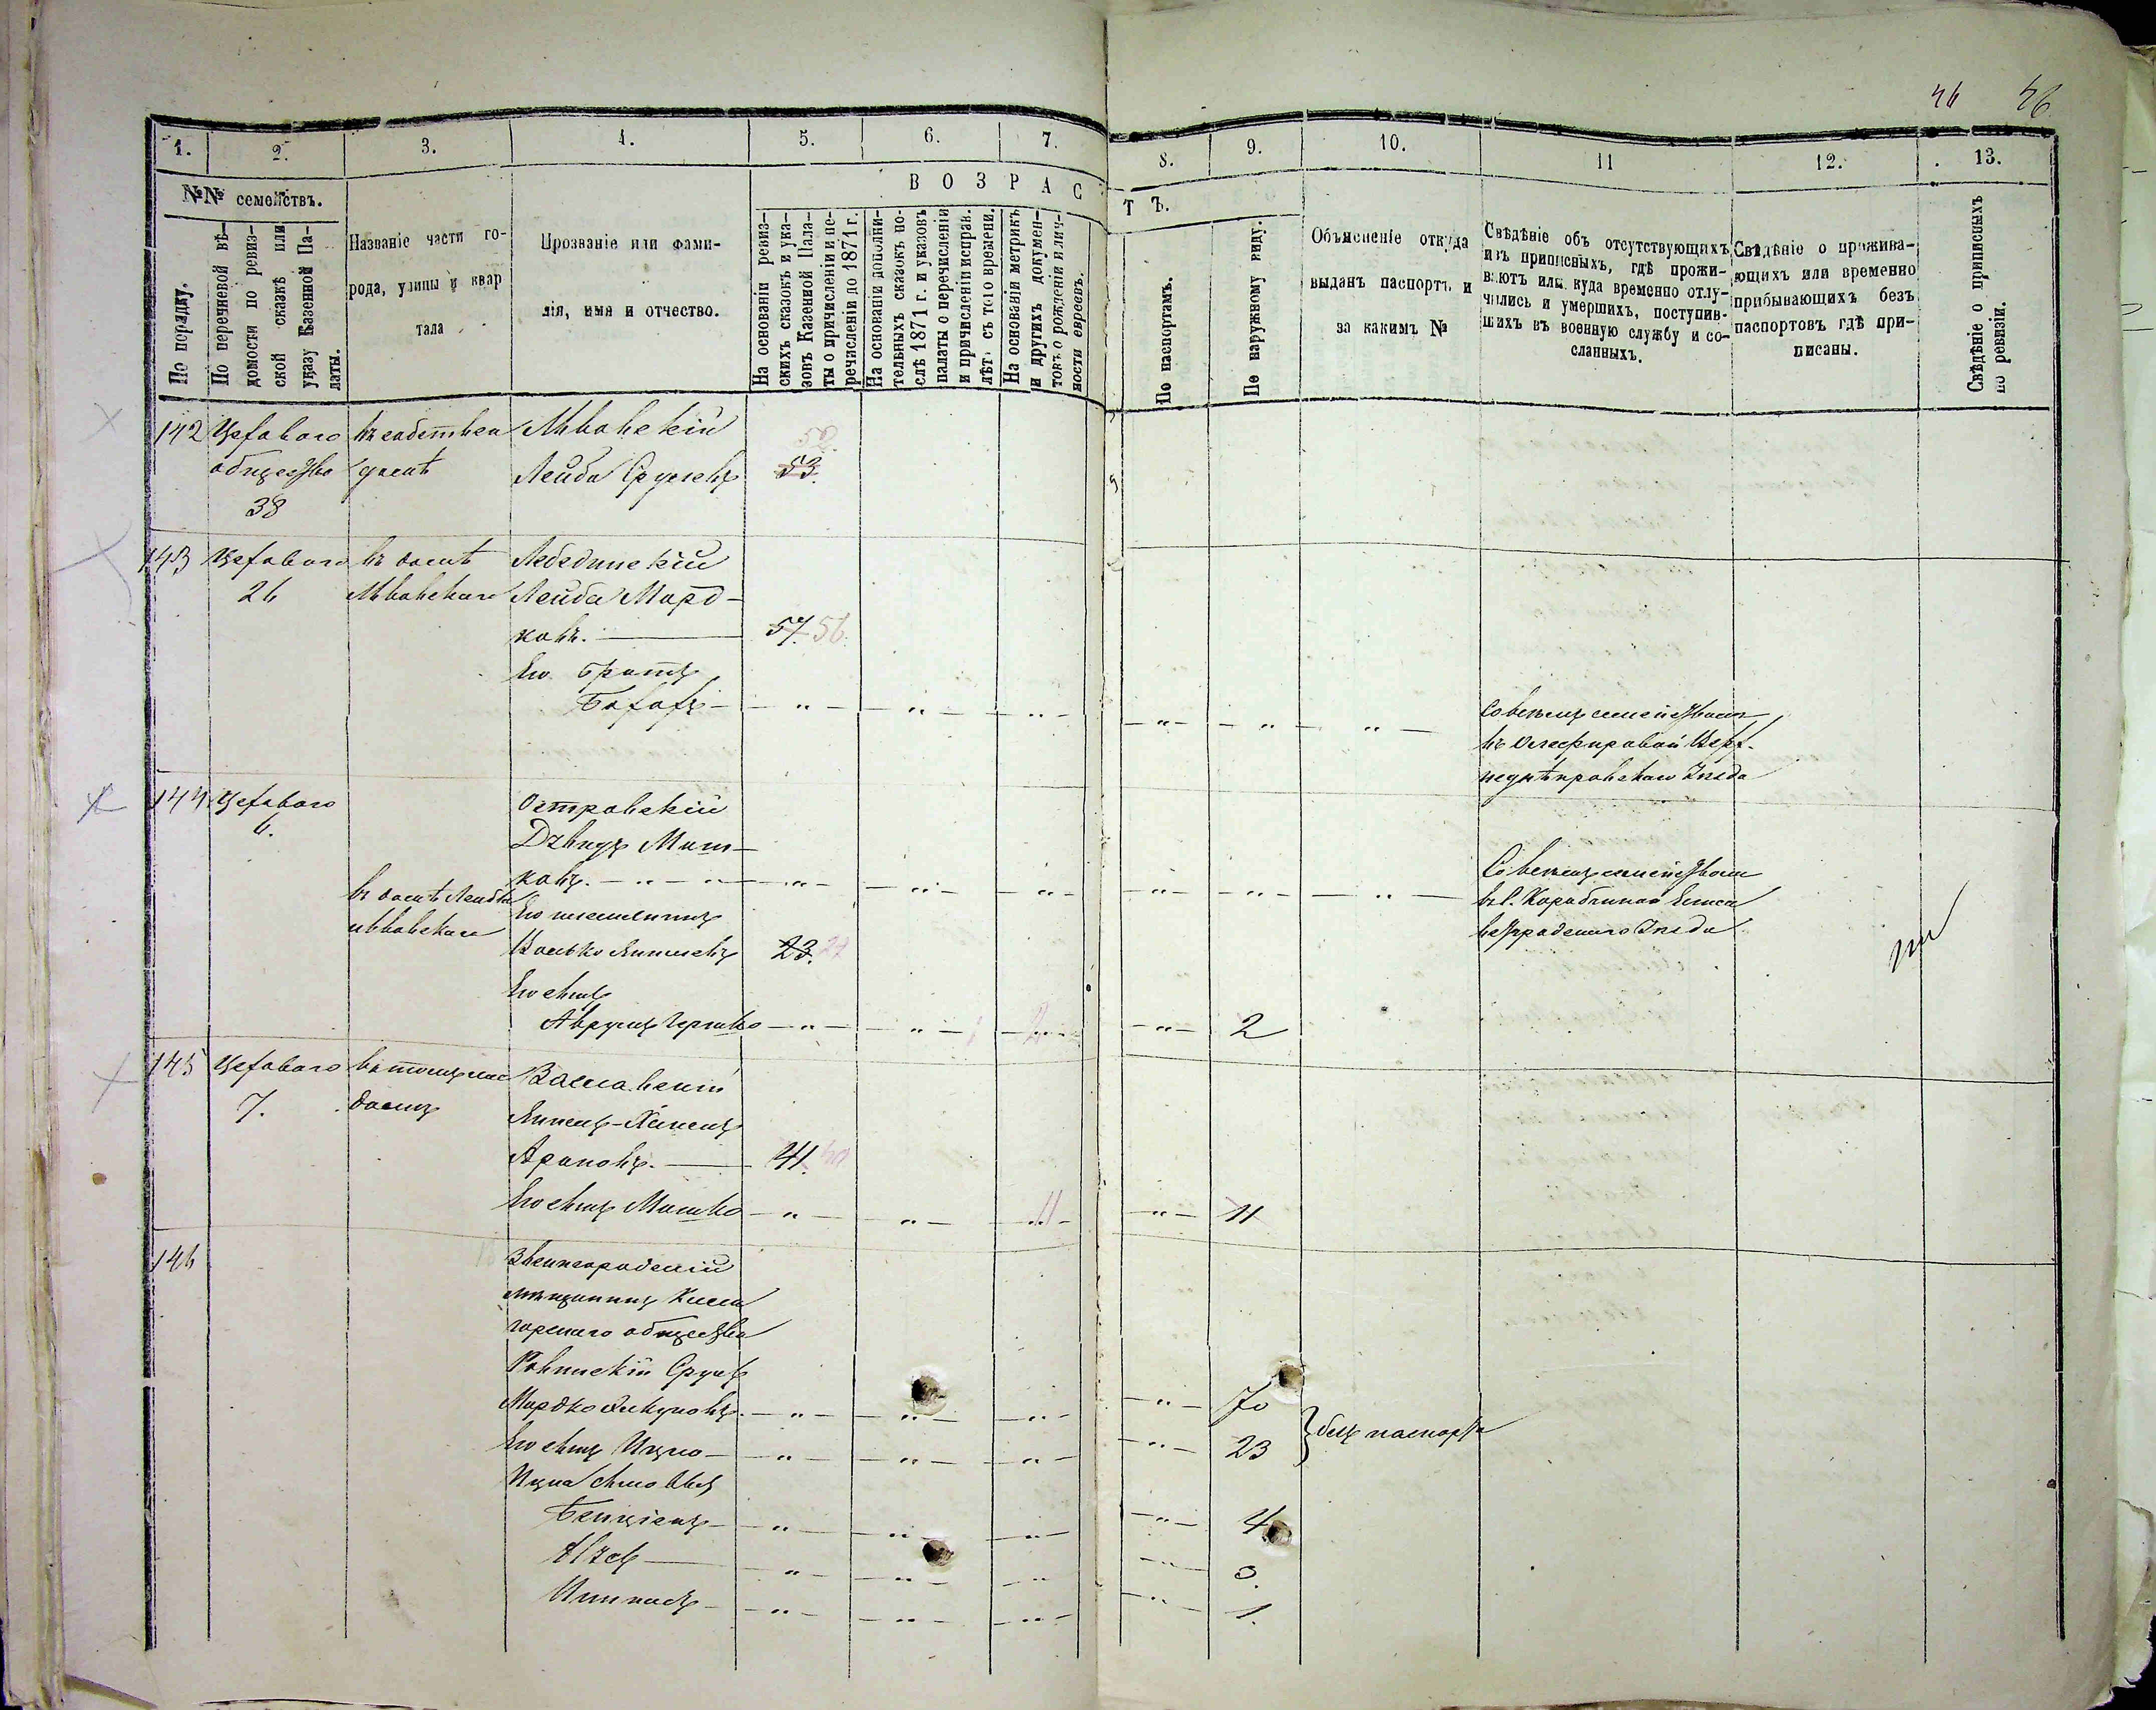 46 46
1. 2. 3. 4. 5. 6. 7. 8. 9. 10. 11 12. 13.
№№ семействъ.
В О З Р А С Т Ъ.
По порядку.
По перечневой вѣ-
домости по ревиз-
ской сказкѣ или
указу Казенной Па-
латы.
Названіе части го-
рода, улицы и квар
тала
Прозваніе или фами-
лія, имя и отчество.
На основаніи ревиз-
скихъ сказокъ и ука-
зовъ Казенной Пала-
ты о причисленіи и пе-
речисленіи до 1871 г.
На основаніи дополни-
тельныхъ сказокъ по-
слѣ 1871 г. и указовъ
палаты о перечисленіи
и причисленіи исправ.
лѣтъ съ того времени.
На основаніи метрикъ
и другихъ докумен-
товъ о рожденіи и лич-
ности евреевъ.
По паспортамъ.
По наружному виду.
Объясненіе откуда
выданъ паспортъ и
за какимъ №
Свѣдѣніе объ отсутствующихъ
изъ приписныхъ, гдѣ прожи-
ваютъ или куда временно отлу-
чились и умершихъ, поступив-
шихъ въ военную службу и со-
сланныхъ.
Свѣдѣніе о прожива-
ющихъ или временно
прибывающихъ безъ
паспортовъ гдѣ при-
писаны.
Свѣдѣніе о приписныхъ
по ревизіи.
142 Цеховаго въ собствен Ивковскій 52
общества домѣ Лейба Срулевъ 53.
38
143 Цеховаго въ домѣ Лебединскій
26 Ивковскаго Лейба Морд-
ковъ. 57. 56.
Его братъ
Борохъ — " — " — " — " — " — " — Совсемъ семействомъ
въ Олефировой Верх-
неднѣпровскаго Уезда
144 Цеховаго Островскій
6. Давидъ Мош-
ковъ. — " — " — " — " — " — " — Совсемъ семействомъ
въ домѣ Лейбы Его племянникъ
Ивковскаго Волько 23.
Его сынъ
Аврумъ Гершко — " — " — 2 — " — 2
145 Цеховаго
7. домъ
Ароновъ. 41. 40
Его сынъ Мошко — " — " — 11 — " — 11
146 Звенигородскій
мещанинъ
общества
Ровинскій Сруль
Мордко — " — " — " — " — 70
Его сынъ Ицко — " — " — " — " — 23 } безъ паспорта
Ицка сыновья
Бенціонъ — " — " — " — " — 4
— " — " — " — " — 3.
— " — " — " — " — 1.